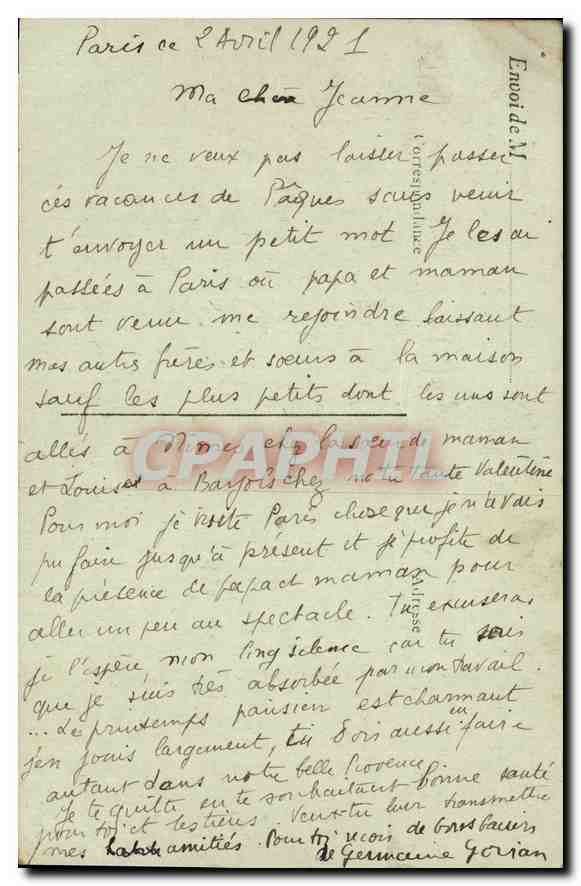 Paris ce 2 Avril 1921
Ma chère Jeanne
Je ne veux pas laisser passer
ces vacances de Pâques sans venir
t'envoyer un petit mot Je les ai
passées à Paris où papa et maman
sont venu me rejoindre laissant
mes autres frères et sœurs à la maison
sauf les plus petits dont les uns sont
allés à Nimes chez la sœur de maman
et Louis à Barjols chez notre tante Valentine
Pour moi je visite Paris chose que je n'avais
pu faire jusqu'à présent et je profite de
la présence de papa et maman pour
aller un peu au spectacle. Tu excuseras
je l'espère mon long silence car tu sais
que je suis très absorbée par mon travail.
... Le printemps parisien est charmant
j'en jouis largement, tu dois aussi en faire
autant dans notre belle Provence.
Je te quitte en te souhaitant bonne santé
pour toi et les tiens. Veux-tu leur transmettre
mes amitiés. Pour toi reçois de bons baisers
de Germaine Gorjan
Envoi de M
Correspondance
Adresse
CPAPHIL